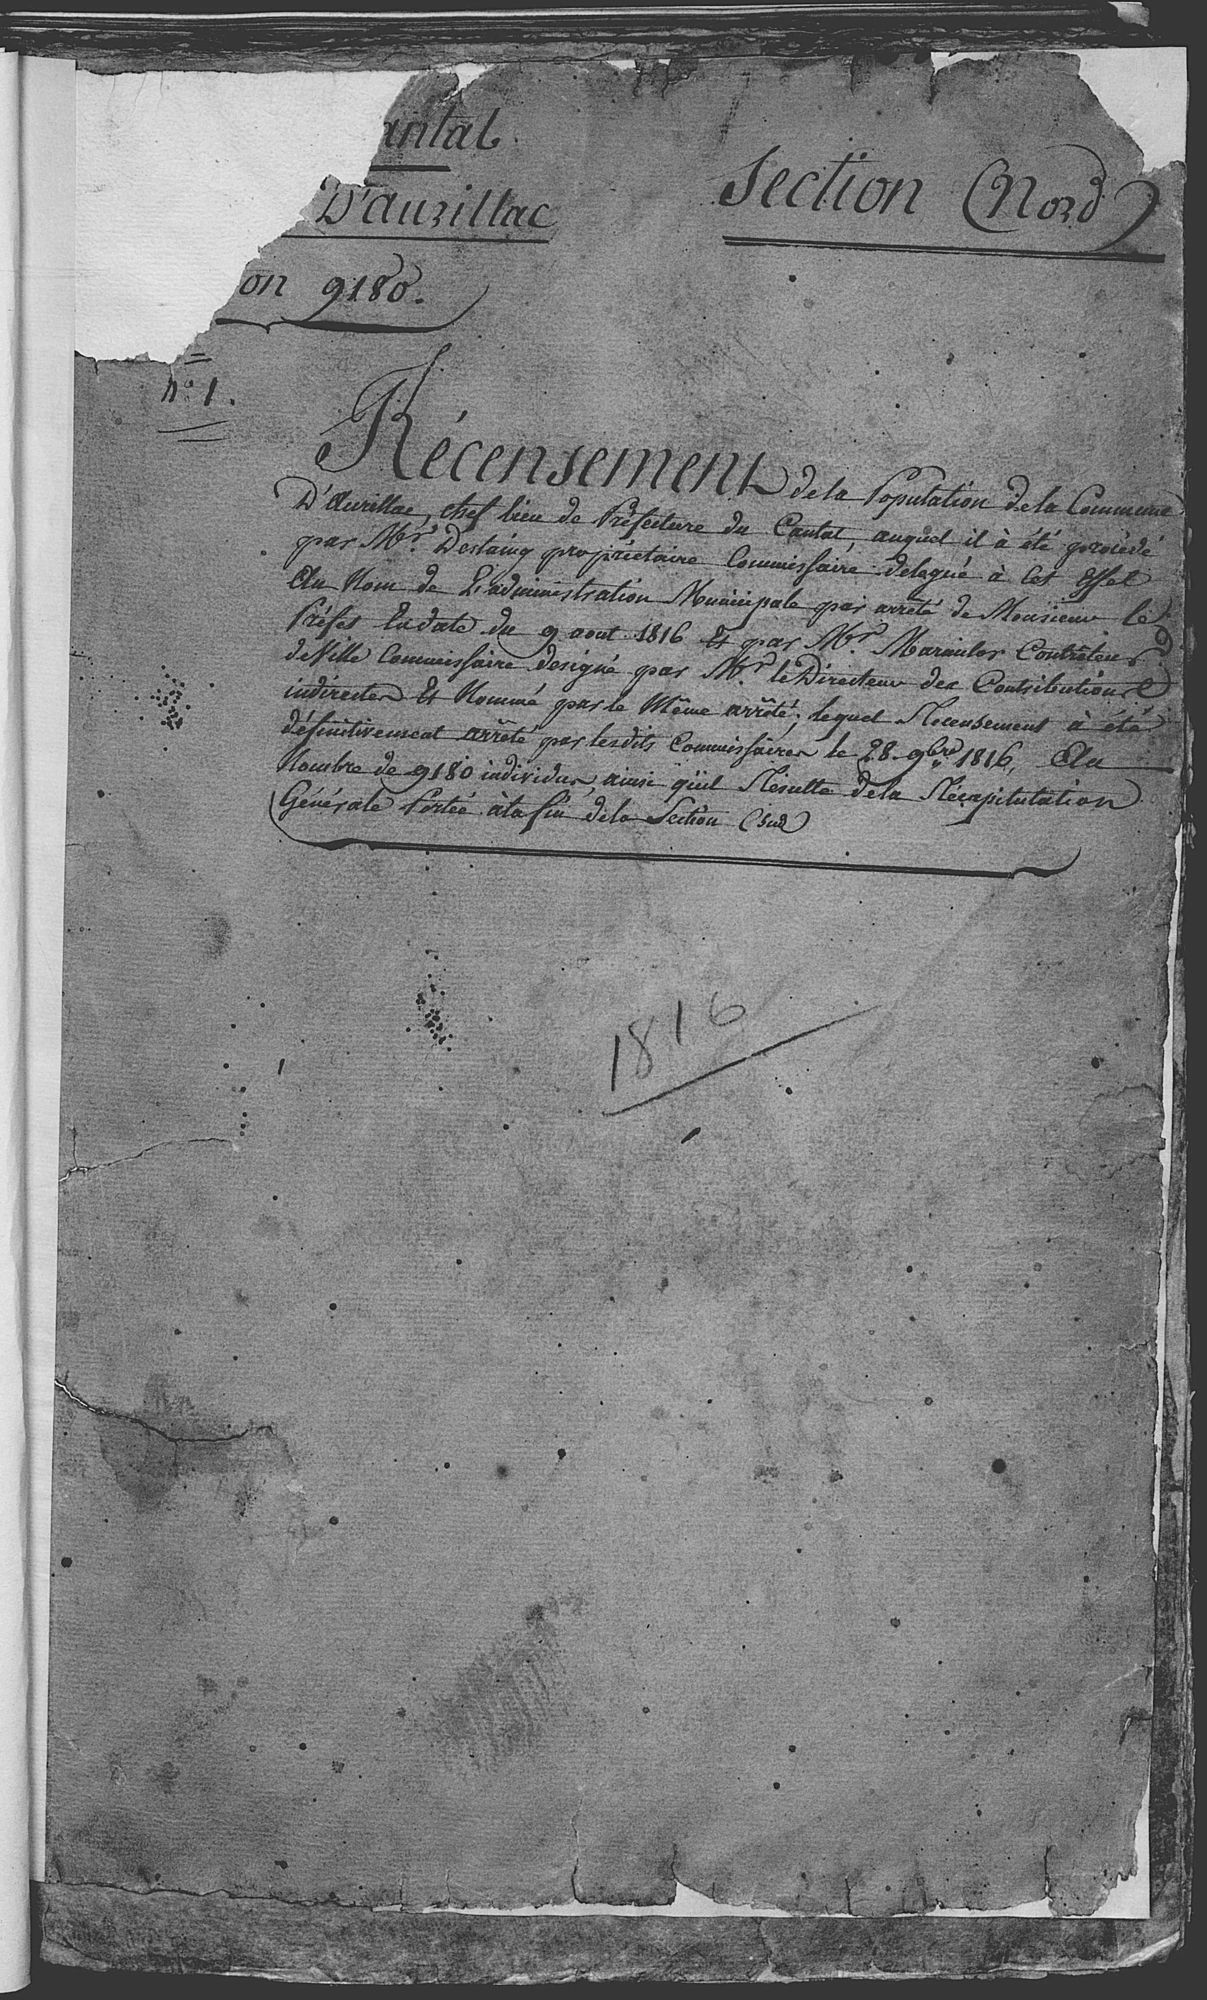 antal
D'aurillac
Section (Nord)
on 9180.
nº 1.
Récensement de la Population de la Commune
D'Aurillac, chef lieu de Préfecture du Cantal auquel il à été procédé
par Mr. Destaing propriétaire Commissaire delegué à Cet Effet
Au Nom de L'administration Municipale par arrêté de Monsieur le
Préfet En date du 9 aout 1816 Et par Mr. Contrôleur
de Ville Commissaire designé par Mr. le Directeur des Contributions
indirectes Et Nommé par le Même arrêté; lequel Recensement à été
définitivement arrêté par lesdits Commissaires le 28. 9bre 1816, Au
Nombre de 9180 individus, ainsi qu'il Résulte de la Récapitulation
Générale Portée à la fin de la Section (Sud)
1816